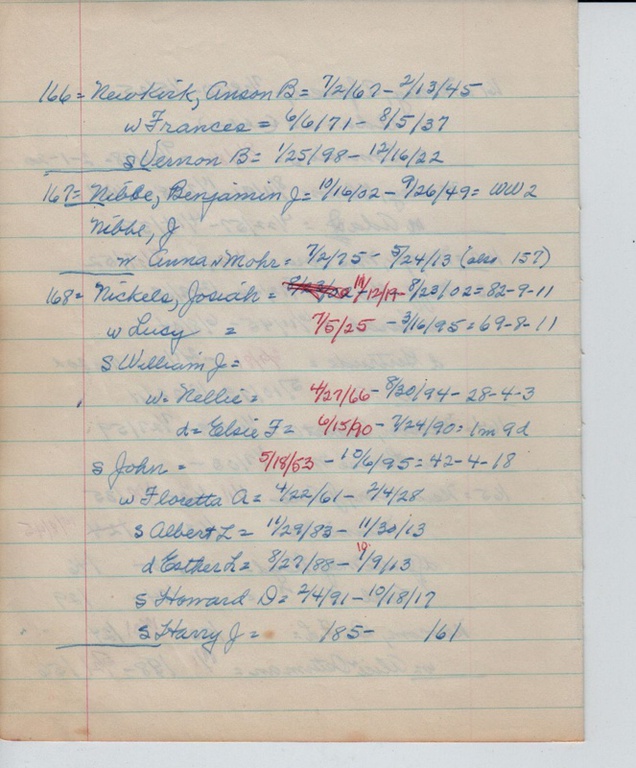 166= Newkirk, Anson B= 7/2/67 - 2/13/45
w Frances = 6/6/71 - 8/5/37
s Vernon B= 1/25/98 - 12/16/22
167= Nibbe, Benjamin J= 10/16/02 - 9/26/49= WW2
Nibbe, J
w Anna v Mohr= 7/2/75 - 5/24/13 (also 157)
168= Nickels, Josiah = 11/12/19 - 8/23/02=82-9-11
w Lucy = 7/5/25 - 3/16/95=69-8-11
S William J=
w= Nellie= 4/27/66 - 8/30/94 - 28-4-3
d= Elsie F= 6/15/90 - 7/24/90= 1m 9d
s John = 5/18/53 - 10/6/95=42-4-18
w Floretta A= 4/22/61 - 2/4/28
s Albert L= 11/29/83 - 11/30/13
d Esther L= 8/27/88 - 10/9/13
s Howard D= 2/4/91 - 10/18/17
s Harry J= /85- /61